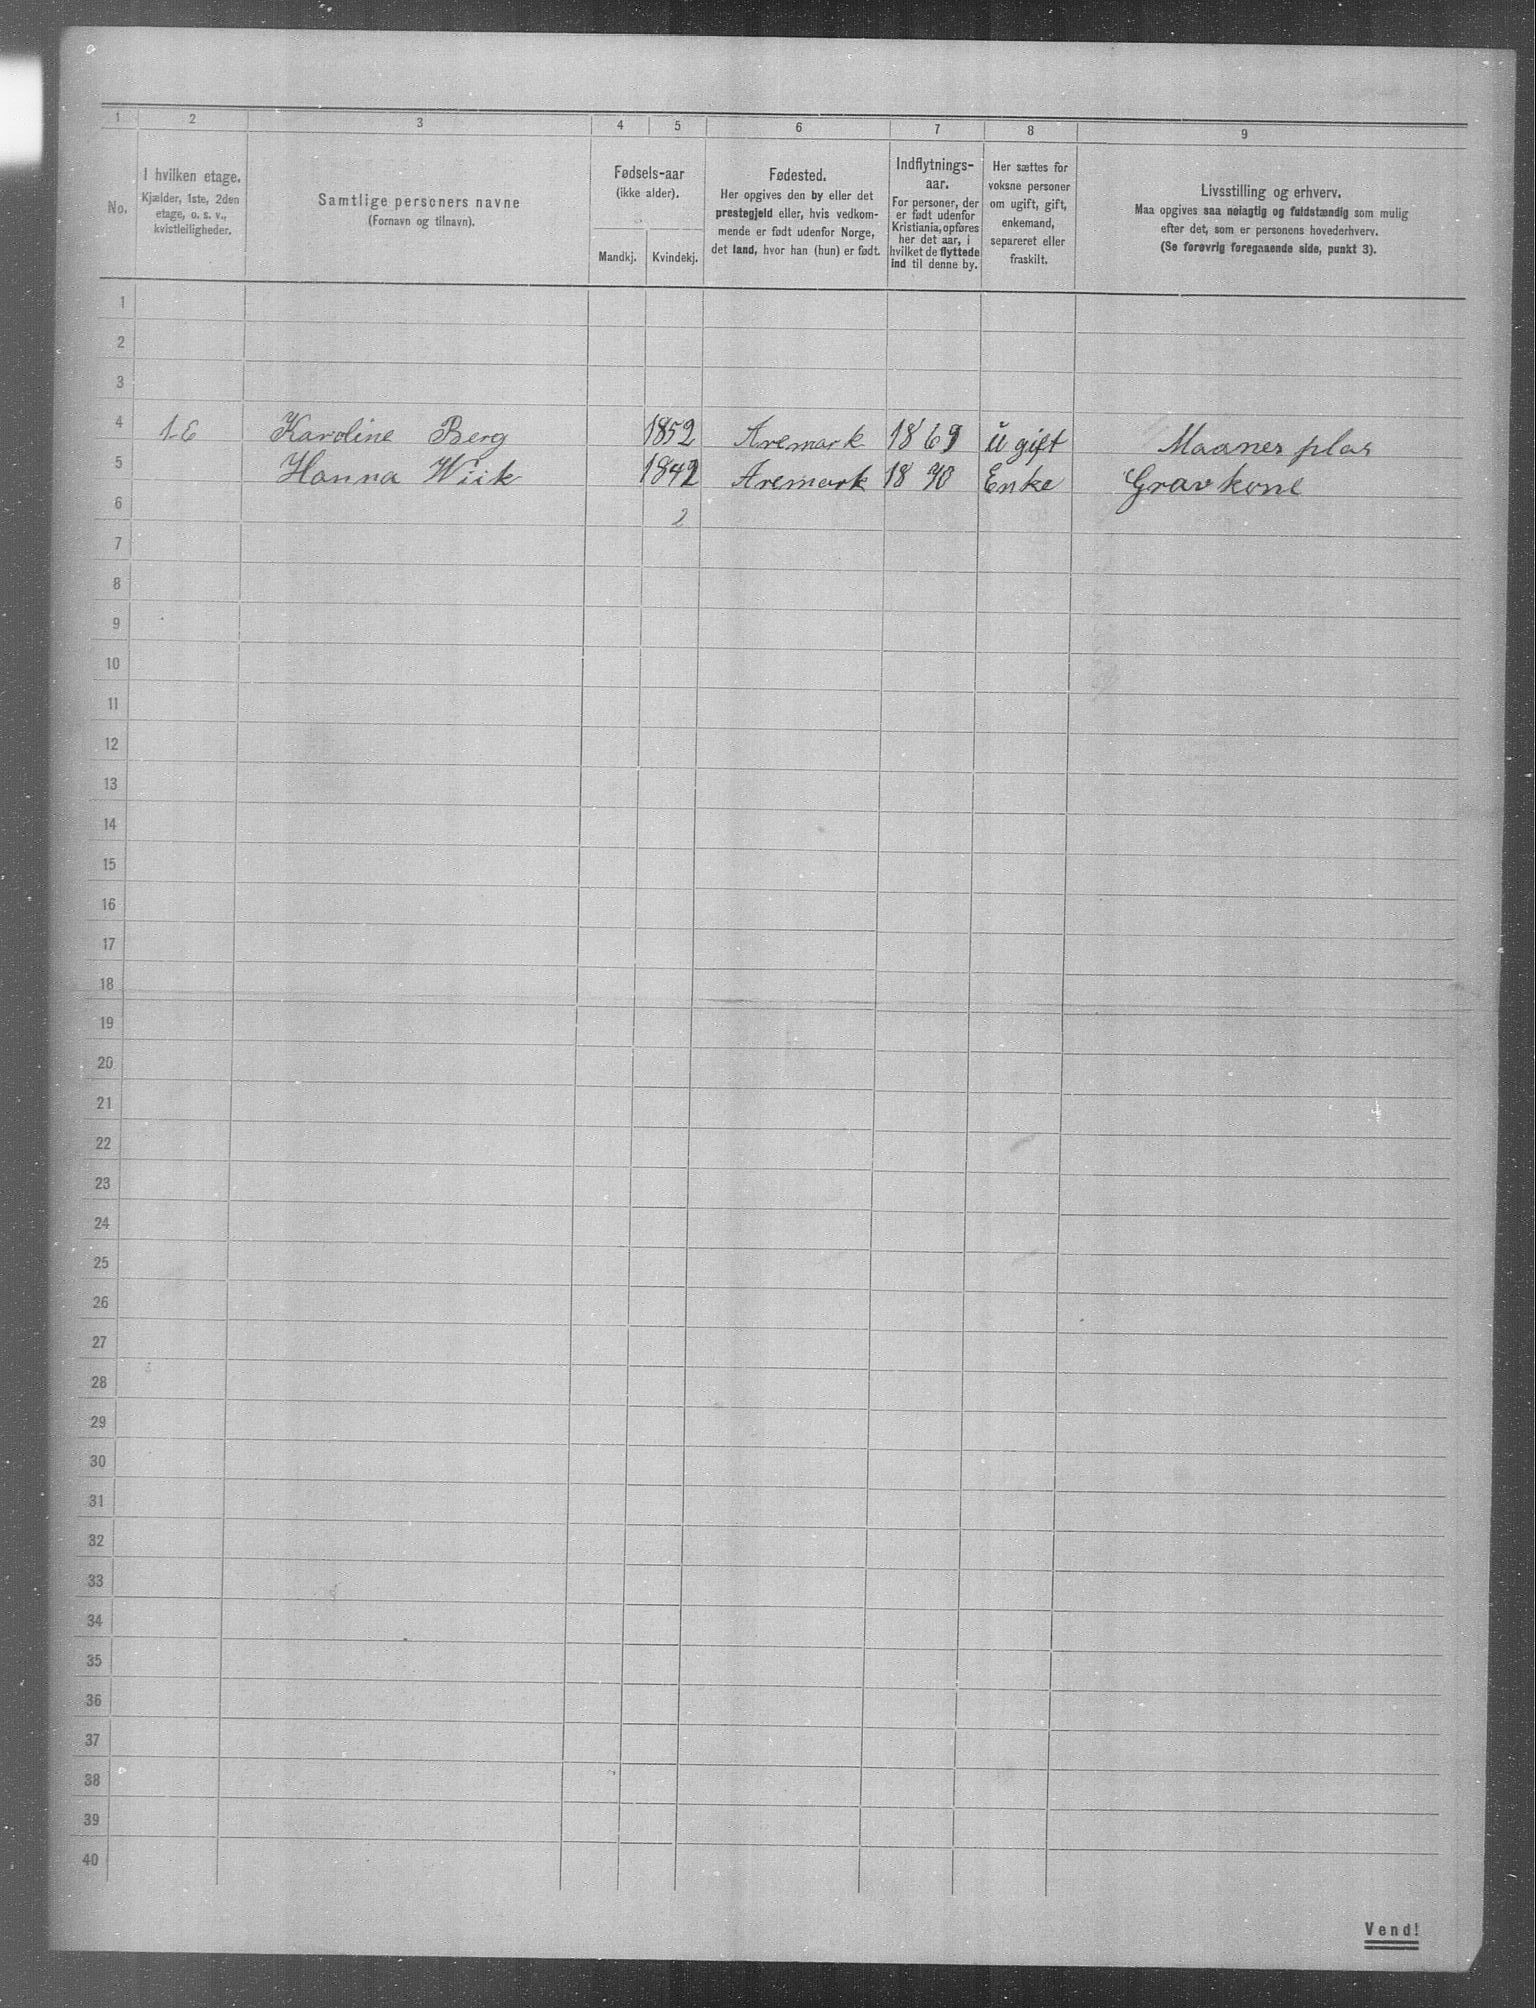 1 2 3 4 5 6 7 8 9
No.
I hvilken etage.
Kjælder, 1ste, 2den
etage, o. s. v.,
kvistleiligheder.
Samtlige personers navne
(Fornavn og tilnavn).
Fødsels-aar
(ikke alder).
Mandkj. Kvindekj.
Fødested.
Her opgives den by eller det
prestegjeld eller, hvis vedkom-
mende er født udenfor Norge,
det land, hvor han (hun) er født.
Indflytnings-
aar.
For personer, der
er født udenfor
Kristiania, opføres
her det aar, i
hvilket de flyttede
ind til denne by.
Her sættes for
voksne personer
om ugift, gift,
enkemand,
separeret eller
fraskilt.
Livsstilling og erhverv.
Maa opgives saa nøiagtig og fuldstændig som mulig
efter det, som er personens hovederhverv.
(Se forøvrig foregaaende side, punkt 3).
1
2
3
4 1 E Karoline Berg 1852 Aremark 1869 ugift Maanes plas
5 Hanna Wiik 1842 Aremark 1890 Enke Gravkone
6 2
7
8
9
10
11
12
13
14
15
16
17
18
19
20
21
22
23
24
25
26
27
28
29
30
31
32
33
34
35
36
37
38
39
40
Vend!